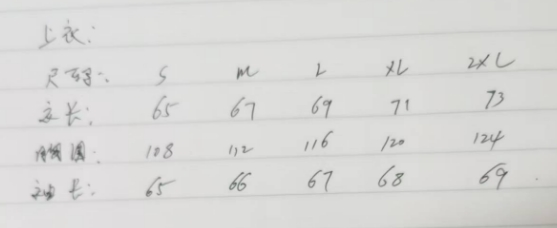 上衣:
尺码: S M L XL 2XL
衣长: 65 67 69 71 73
胸围: 108 112 116 120 124
袖长: 65 66 67 68 69